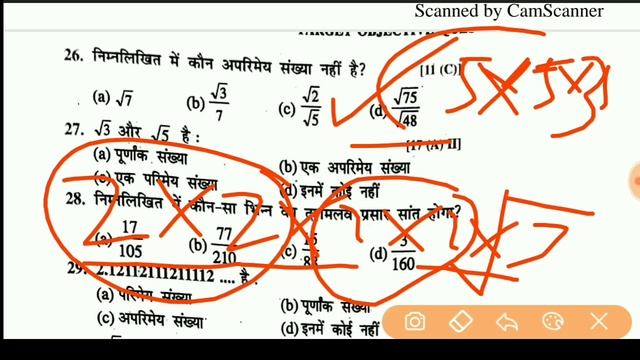 Scanned by CamScanner
TARGET OBJECTIVE
26. निम्नलिखित में कौन अपरिमेय संख्या नहीं है? [11 (C)]
(a) √7 (b) √3/7 (c) √2/√5 (d) √75/√48
5 X 5 X 3
27. √3 और √5 है :
[17 (A) II]
(a) पूर्णांक संख्या (b) एक अपरिमेय संख्या
(c) एक परिमेय संख्या (d) इनमें कोई नहीं
28. निम्नलिखित में कौन-सा भिन्न का दशमलव प्रसार सांत होगा?
2 X 2 X 2 X 2 X
(a) 17/105 (b) 77/210 (c) (d) 3/160
29. 2.12112111211112 .... है :
(a) परिमेय संख्या (b) पूर्णांक संख्या
(c) अपरिमेय संख्या (d) इनमें कोई नहीं